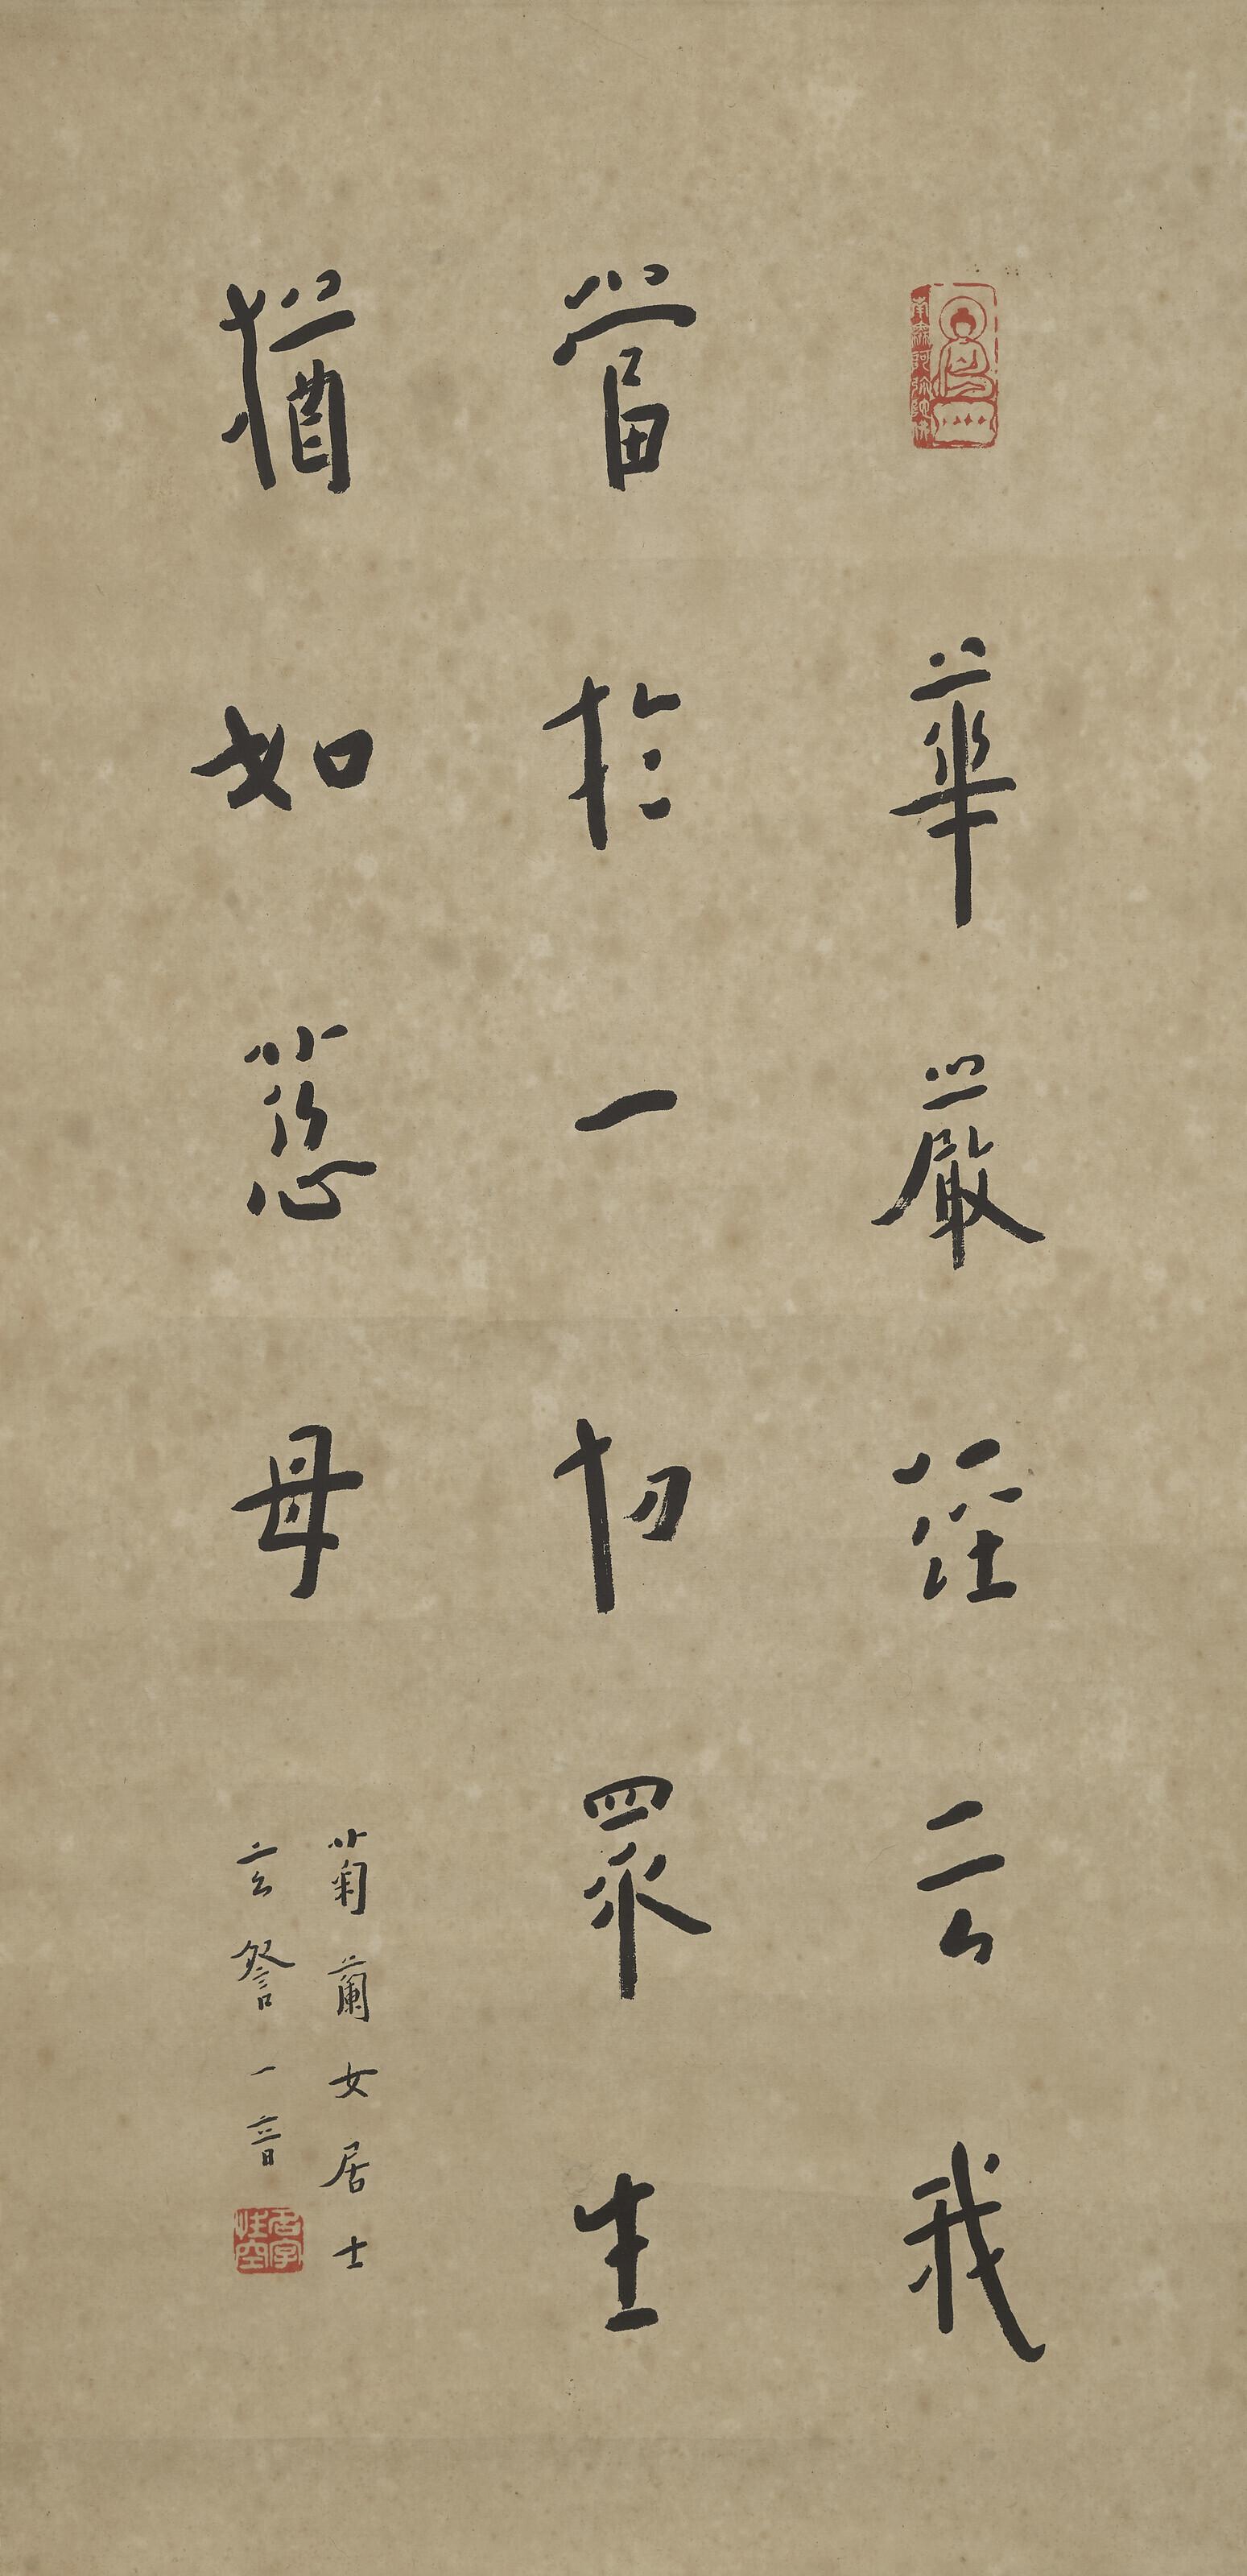 南無阿弥陀佛
華嚴經云我
當於一切眾生
猶如慈母
菊蘭女居士
玄詧一音
名字性空